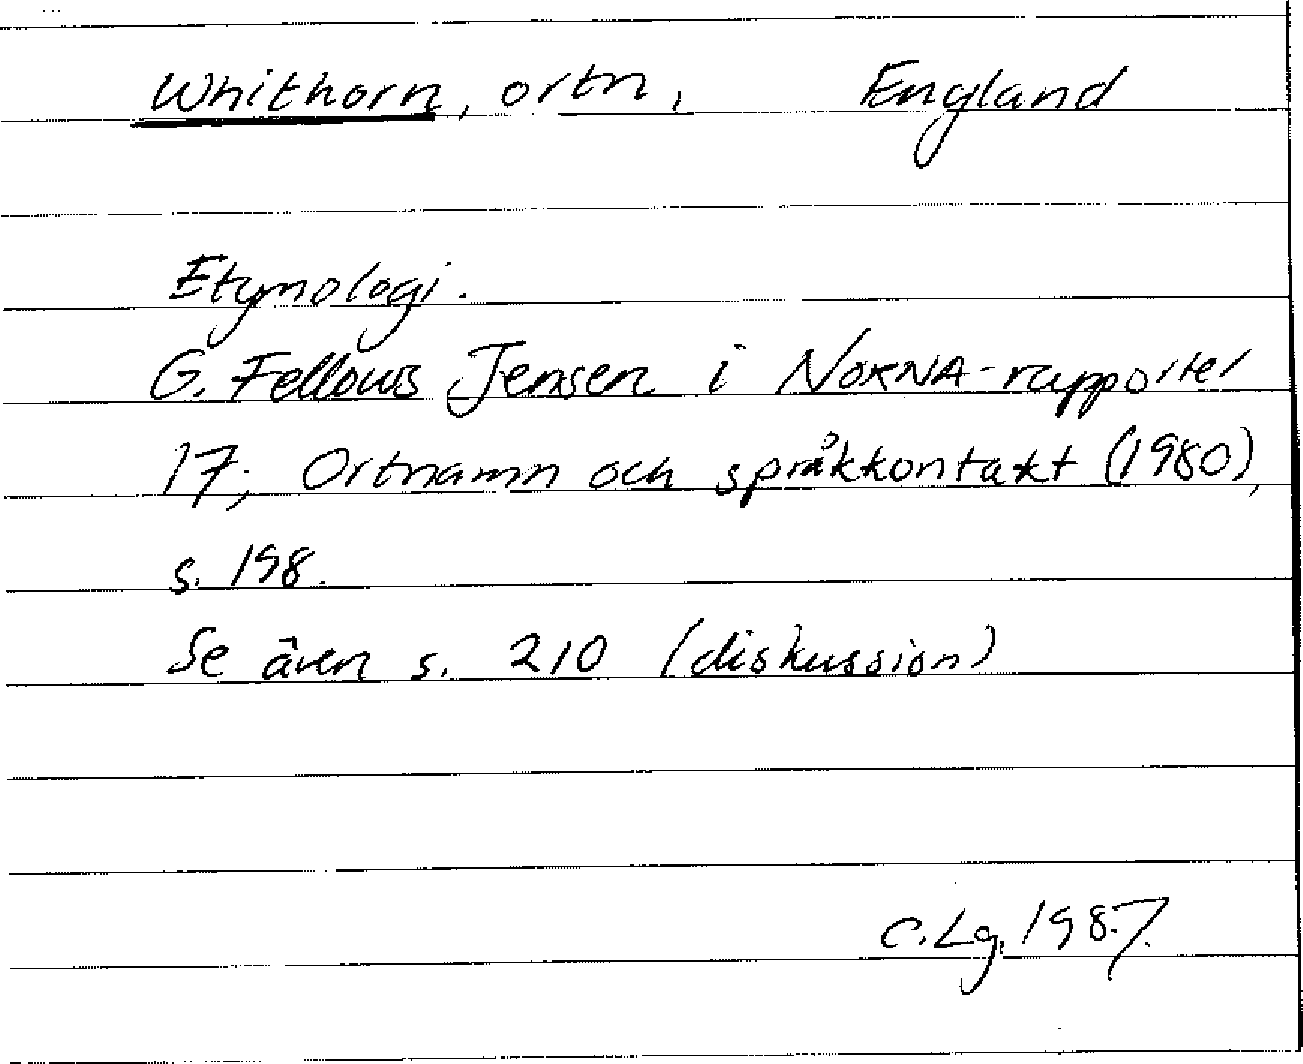 Whithorn, ortn, England
Etymologi.
G. Fellows Jensen i NORNA-rapporter
17; Ortnamn och språkkontakt (1980),
s. 198.
Se även s. 210 (diskussion)
C.Lg. 1987.